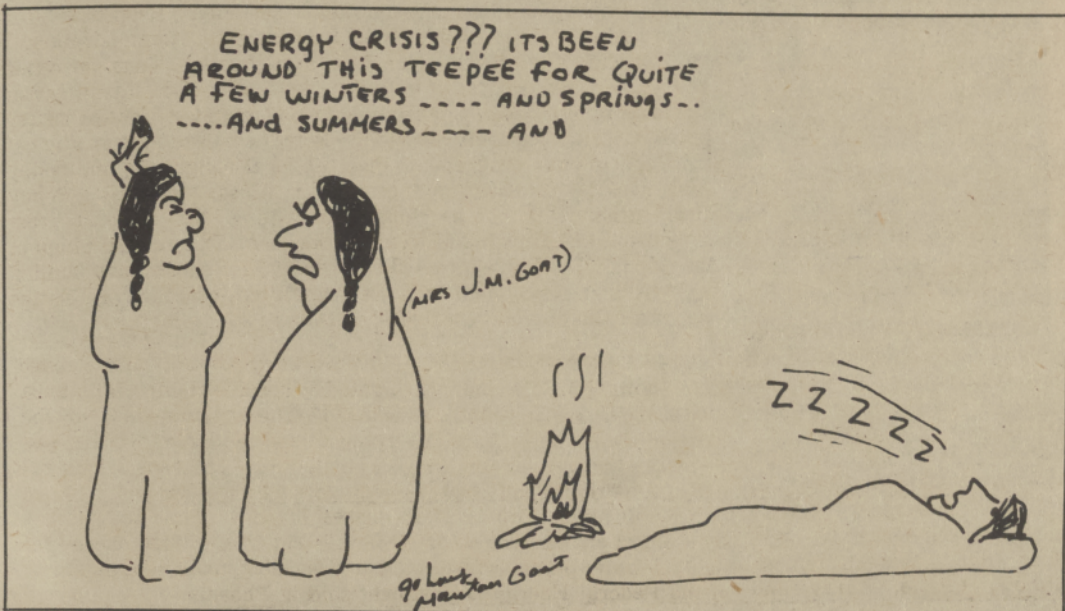 ENERGY CRISIS??? ITS BEEN
AROUND THIS TEEPEE FOR QUITE
A FEW WINTERS ---- AND SPRINGS..
....AND SUMMERS ---- AND
(MRS J.M. GOAT)
Z Z Z Z Z
Goat